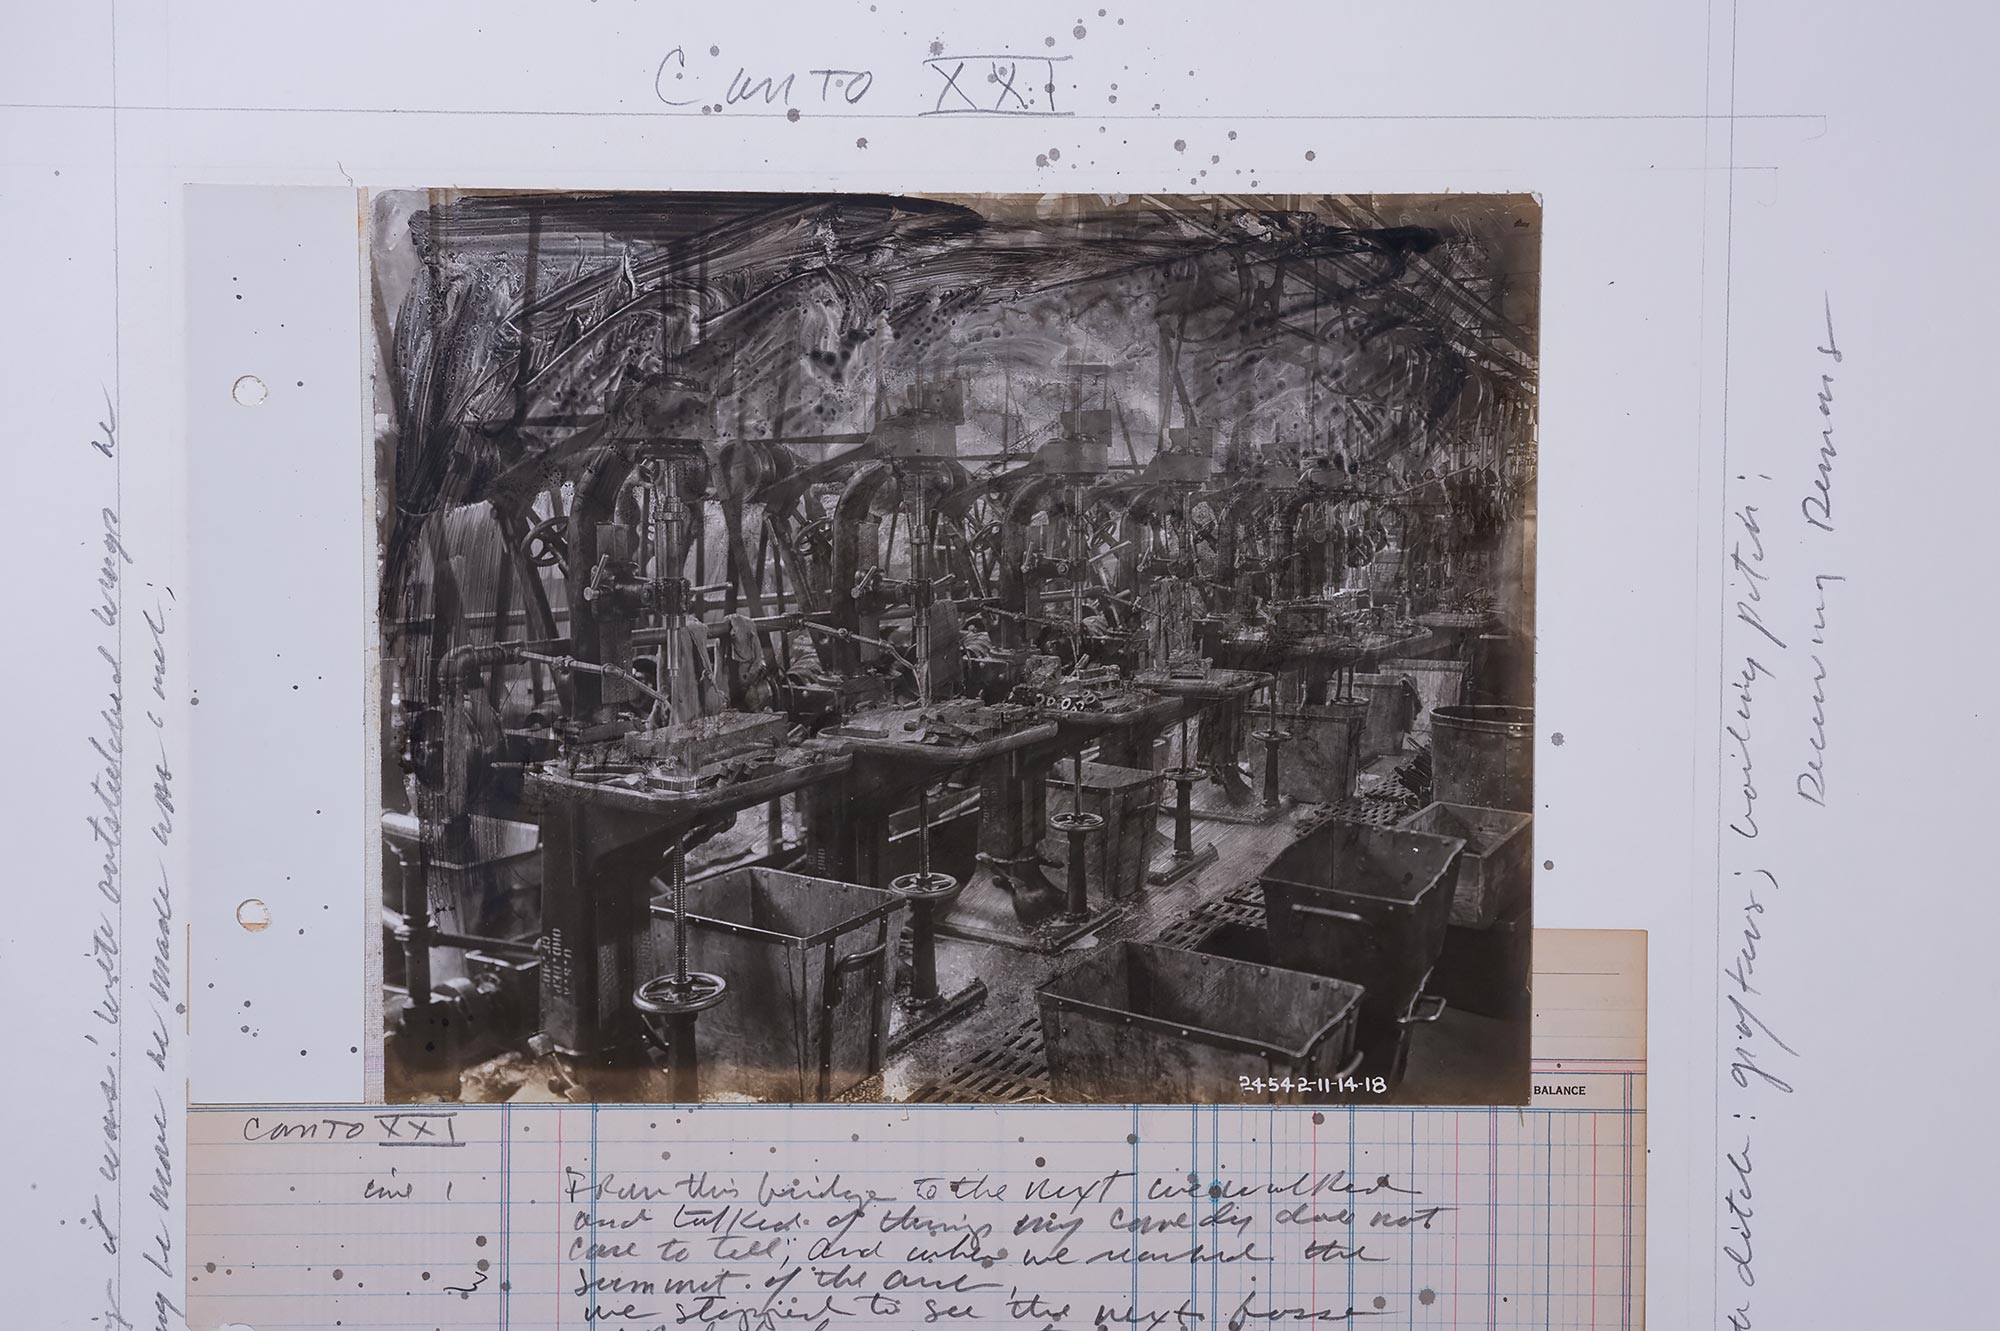 Canto XXI
it was! with outstretched wings he
be more he made his (
ditch: grafters; boiling pitch;
Deceiving Demons
U.S.A.
ORD. DEPT.
24542-11-14-18
BALANCE
Canto XXI
line 1
From this bridge to the next we walked
and talked of things my comedy does not
care to tell; and when we reached the
summit of the arc,
we stopped to see the next fosse